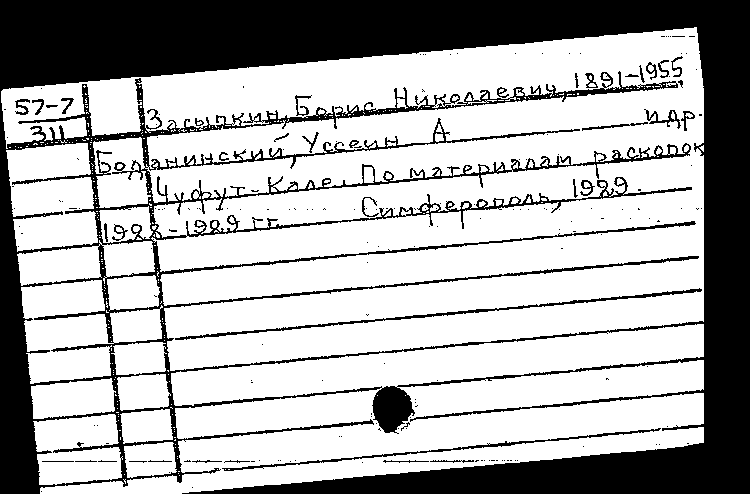 57-7
311
Засыпкин, Борис Николаевич, 1891-1955
Боданинский, Уссеин А и др.
Чуфут-Кале. По материалам раскопок
1928-1929 гг. Симферополь, 1929.